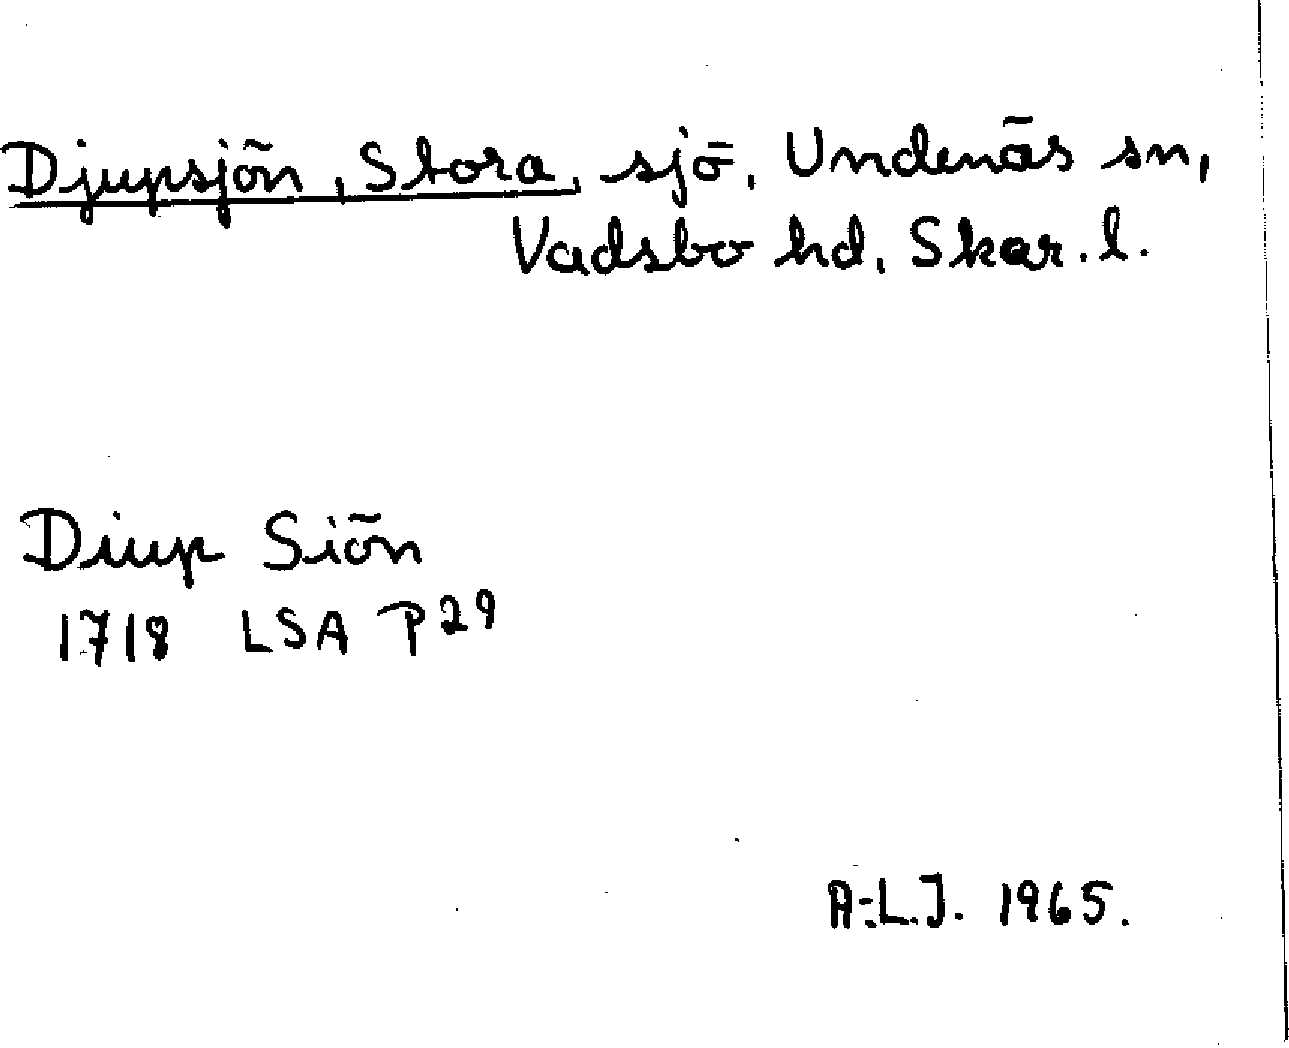 Djupsjön, Stora, sjö, Undenäs sn,
Vadsbo hd, Skar. l.
Diup Siön
1718 LSA P29
A-L.J. 1965.